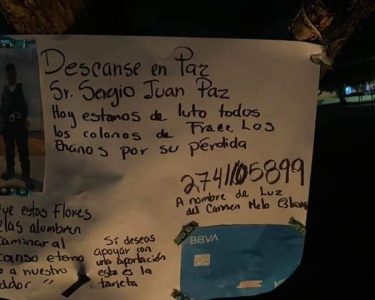 Descanse en Paz
Sr. Sergio Juan Paz
Hoy estamos de luto todos
los colonos de Fracc. Los
Encinos por su pérdida
A nombre de Luz
del Carmen Melo
estas Flores
alumbren
caminar al
eterno
a nuestro
Si deseas
apoyar con
una aportación
esta es la
tarjeta
BBVA